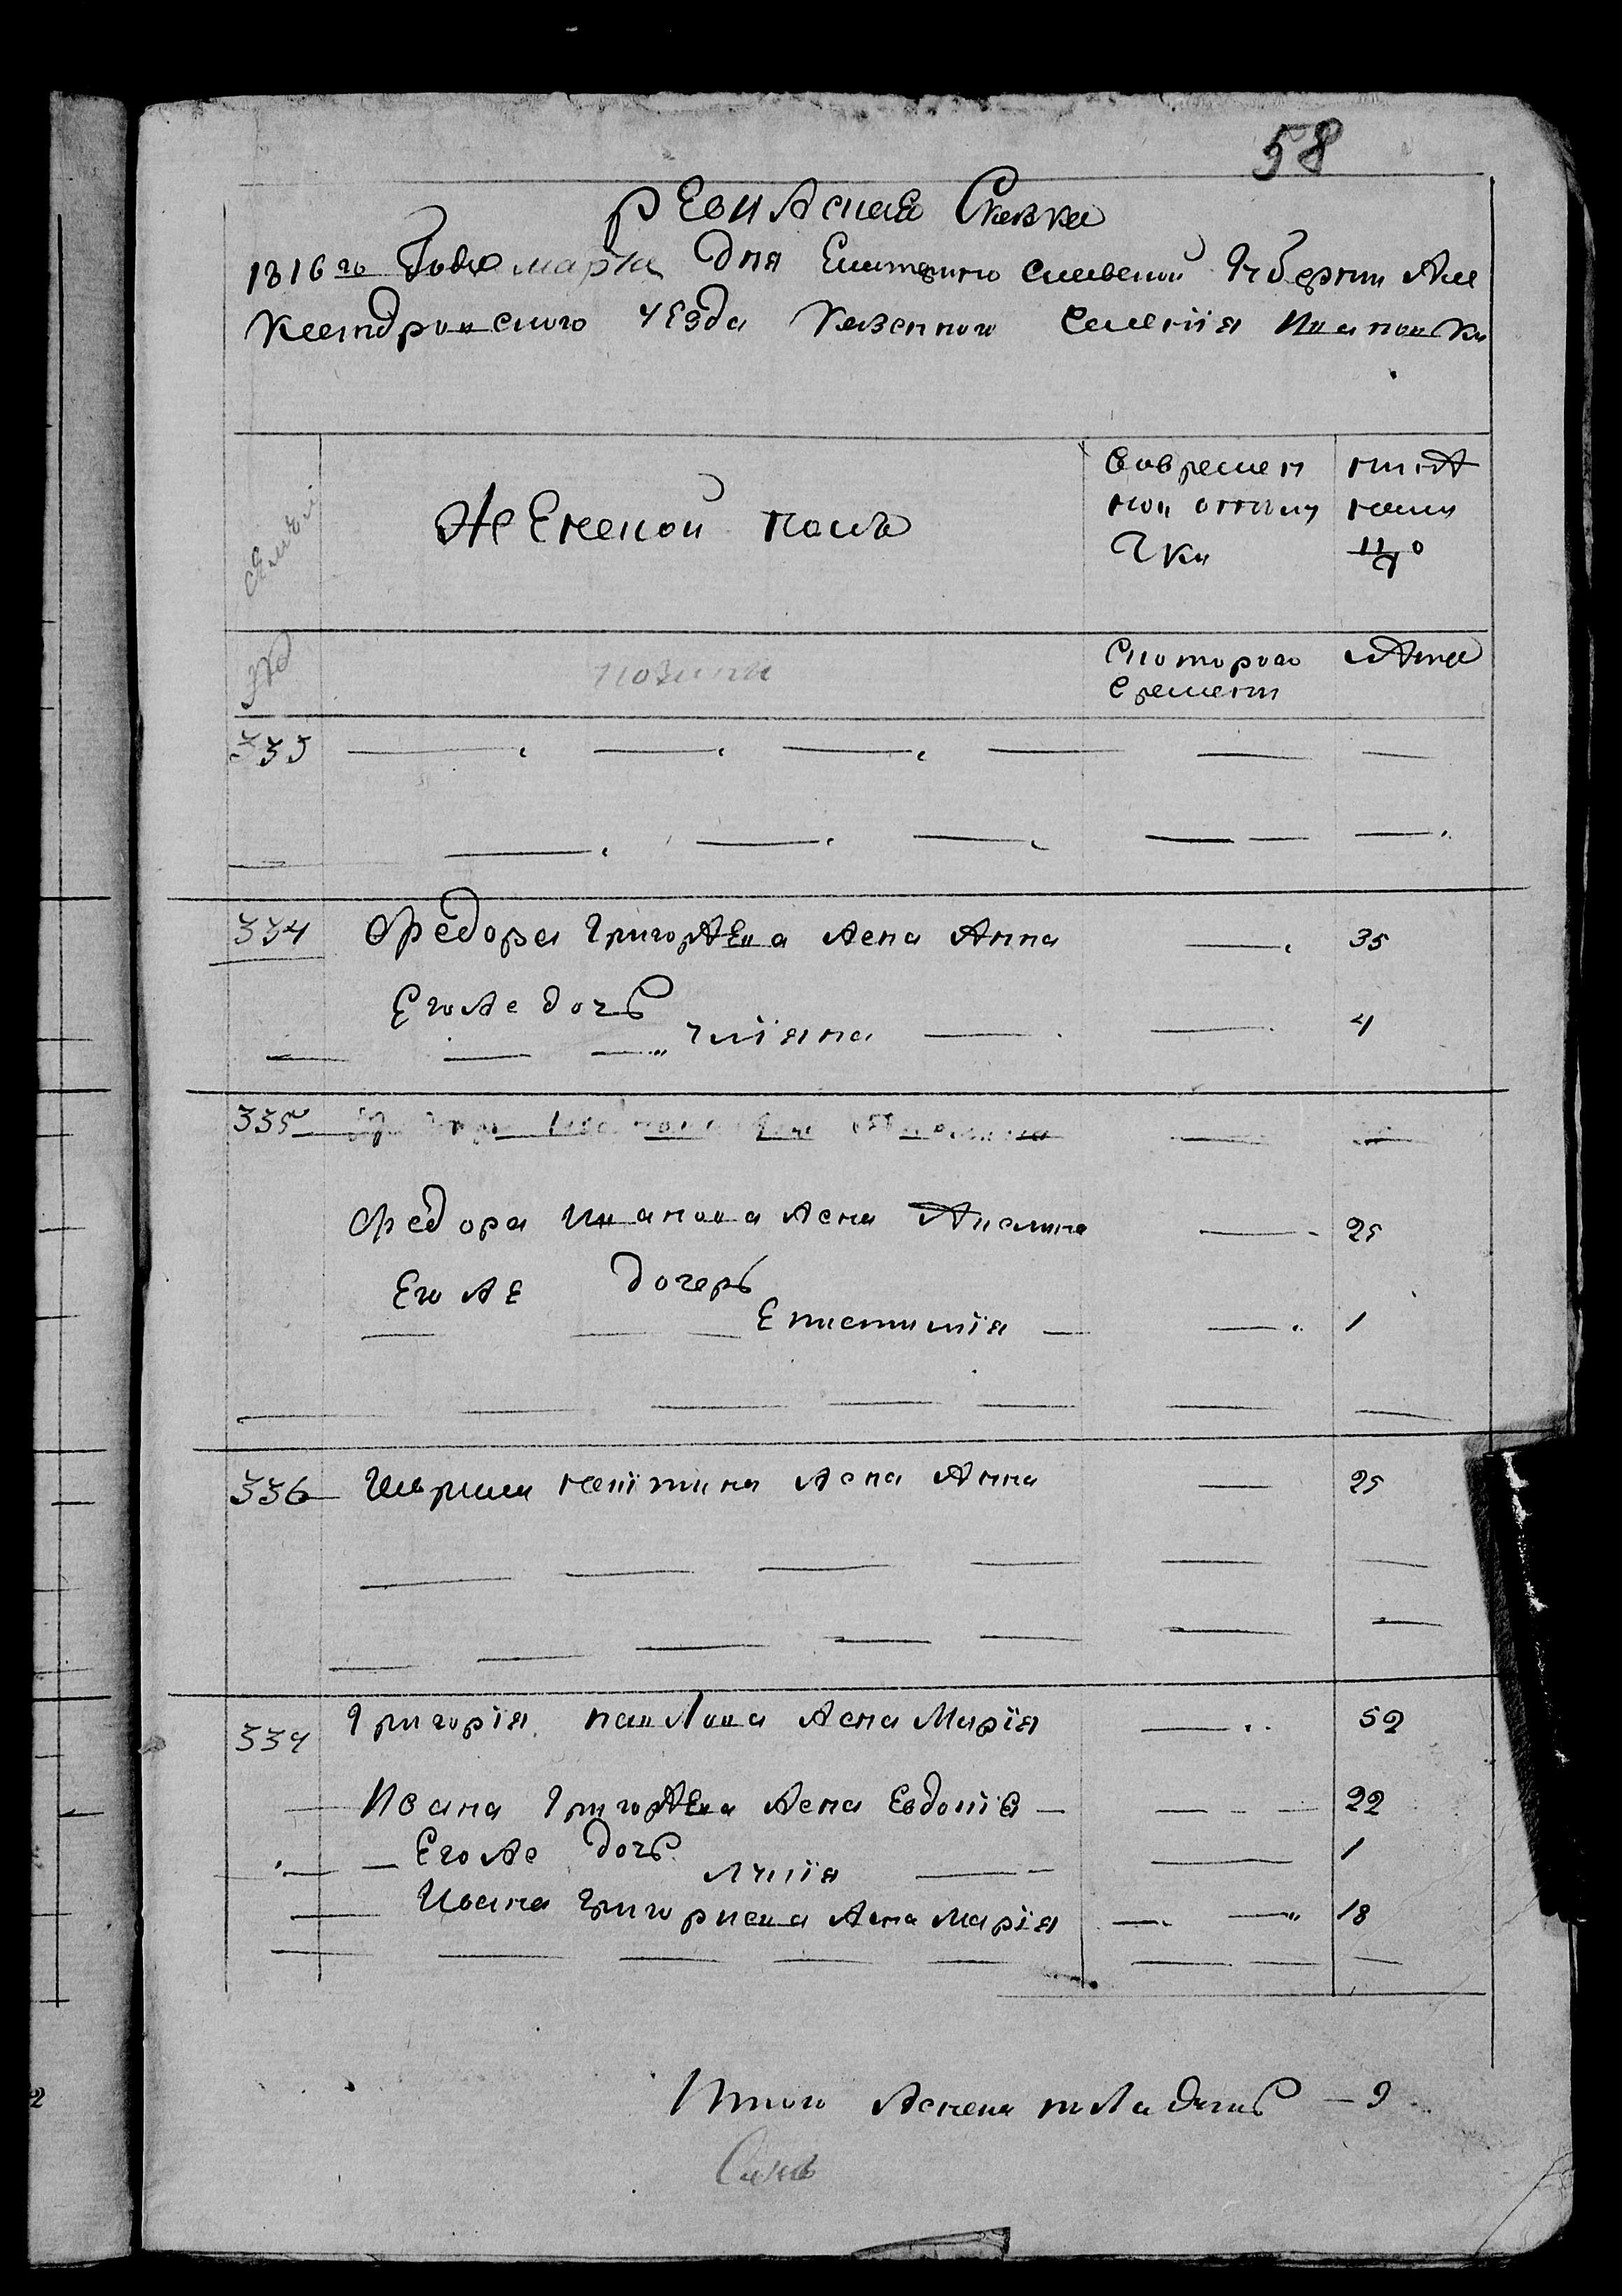 58
ревижская Сказка
1816го Года марта Дня Екатеринославской Губернии Але
ксандровского уезда Казенного Селения Ивановки
Женской полъ
Вовремен
ной отлу
чки
ныне
налицо
Семьи
№
Скоторого
времени
Лета
333
334 Федора Григорьева жена Анна 35
Егоже дочь
Улияна 4
335
Федора Иванова жена Акелина 25
Егоже дочерь
Епистимия 1
336 Гаврила Никитина жена Анна 25
337 Григорія павлова жена Марія 52
Ивана Григорьева жена Евдокія 22
Егоже дочь
Лукія 1
Ивана Григориева жена Марія 18
Итого женска пола душъ 9